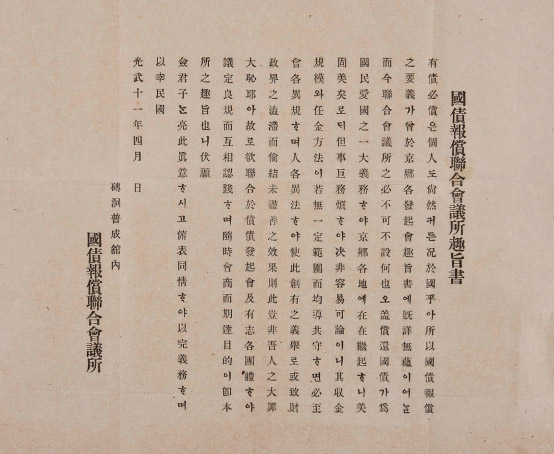 國債報償聯合會議所趣旨書
有債必償은個人도尙然커든況於國乎아所以國債報償
之要義가曾於京鄕各發起會趣旨書에旣詳無蘊이어ᄂᆞᆯ
而今聯合會議所之必不可不設何也오盖償還國債가爲
國民愛國之一大義務ᄒᆞ야京鄕各地에在在繼起ᄒᆞ니美
固美矣로ᄃᆡ但事巨務煩ᄒᆞ야决非容易可論이니其収金
規模와任金方法이若無一定範圍而均導共守ᄒᆞ면必至
會各異規ᄒᆞ며人各異法ᄒᆞ야使此創有之義擧로或致財
政界之澁滯而偷結未盡善之效果則此豈非吾人之大罪
大恥耶아故로欲聯合於償債發起會及有志各團體ᄒᆞ야
議定良規而互相認踐ᄒᆞ며隨時會商而期達目的이卽本
所之趣旨也니伏願
僉君子ᄂᆞᆫ亮此眞意ᄒᆞ시고俯表同情ᄒᆞ야以完義務ᄒᆞ며
以幸民國
光武十一年四月 日
磚洞普成館內
國債報償聯合會議所